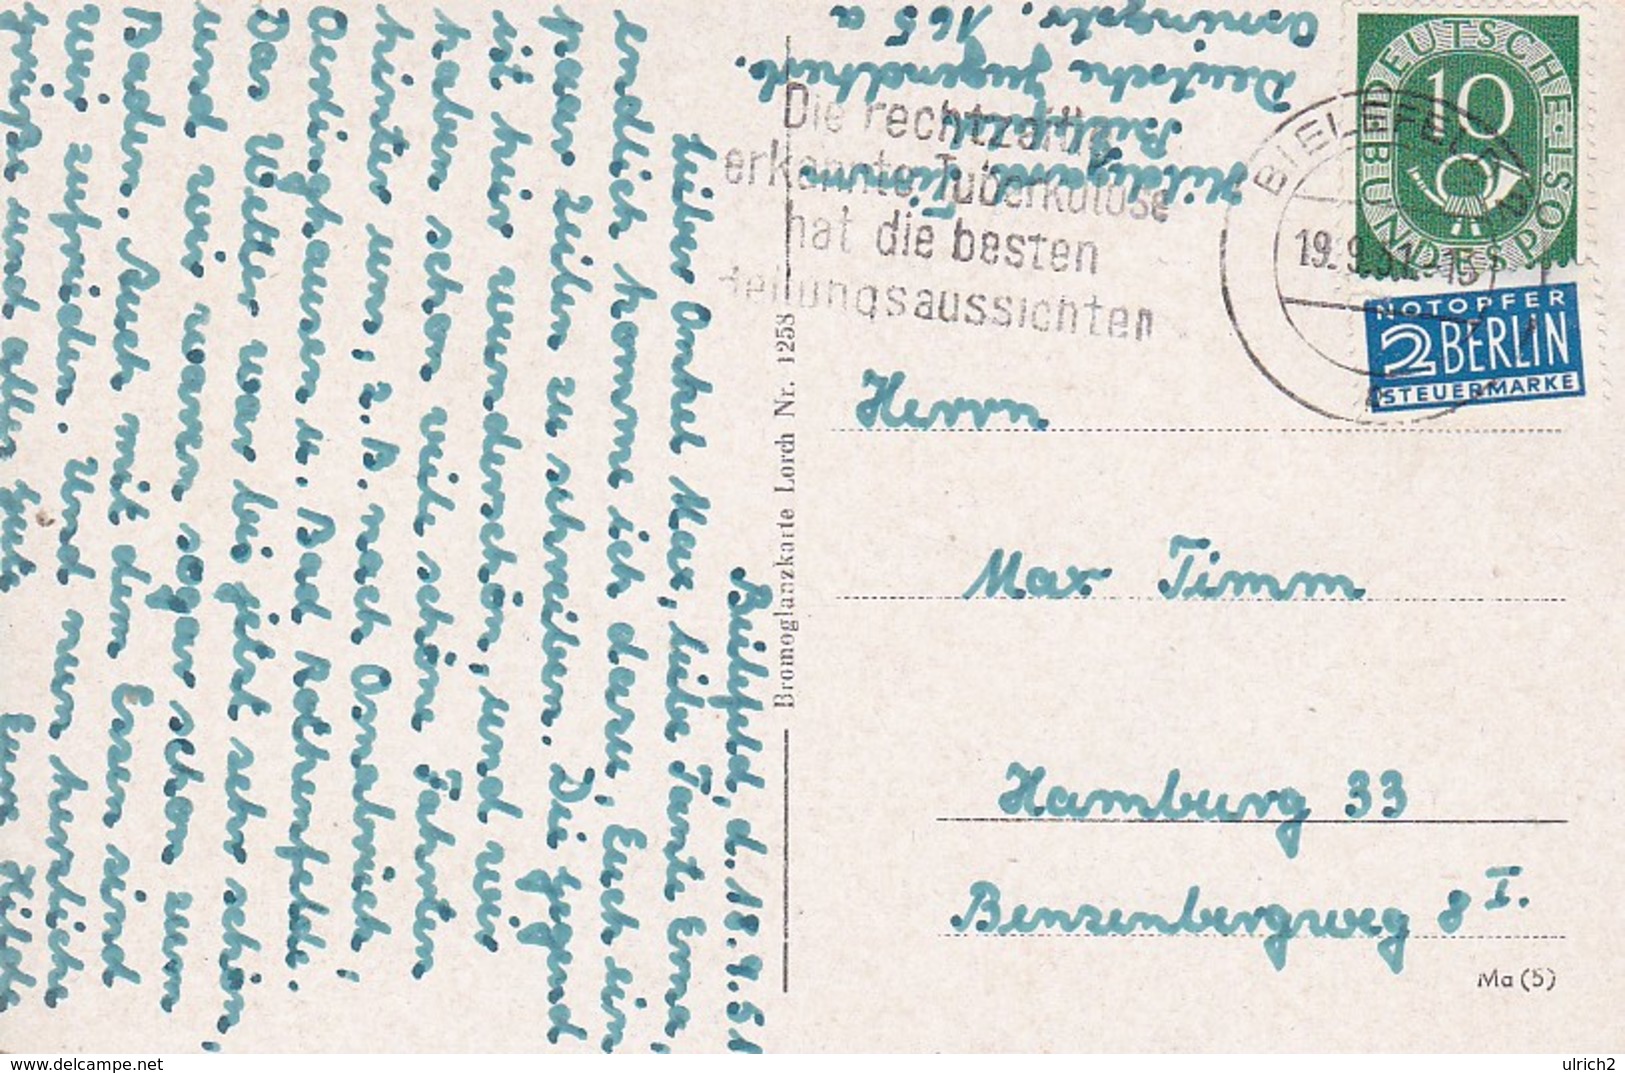 Bielefeld, d. 18.9.51
Lieber Onkel Max, liebe Tante Erna,
endlich komme ich dazu, Euch ein
paar Zeilen zu schreiben. Die Jugend
ist hier wunderschön, und wir
haben schon viele schöne Fahrten
hinter uns, z.B. nach Osnabrück,
Oerlinghausen u. Bad Rothenfelde.
Das Wetter war bis jetzt sehr schön
und wir waren sogar schon zum
Baden. Auch mit dem Essen sind
wir zufrieden. Und nun herzliche
Grüße und alles Gute Eure Hilde
Hildegard Timm
Bielefeld
Deutsche Jugendherb.
Osningstr. 165 a
Die rechtzeitig
erkannte Tuberkulose
hat die besten
Heilungsaussichten
BIELEFELD
19.9.51.-15
DEUTSCHE BUNDESPOST
10
NOTOPFER
2 BERLIN
STEUERMARKE
Bromoglanzkarte Lorch Nr. 1258
Herrn
Max Timm
Hamburg 33
Benzenbergweg 8 I.
Ma (5)
https://www.delcampe.net
ulrich2